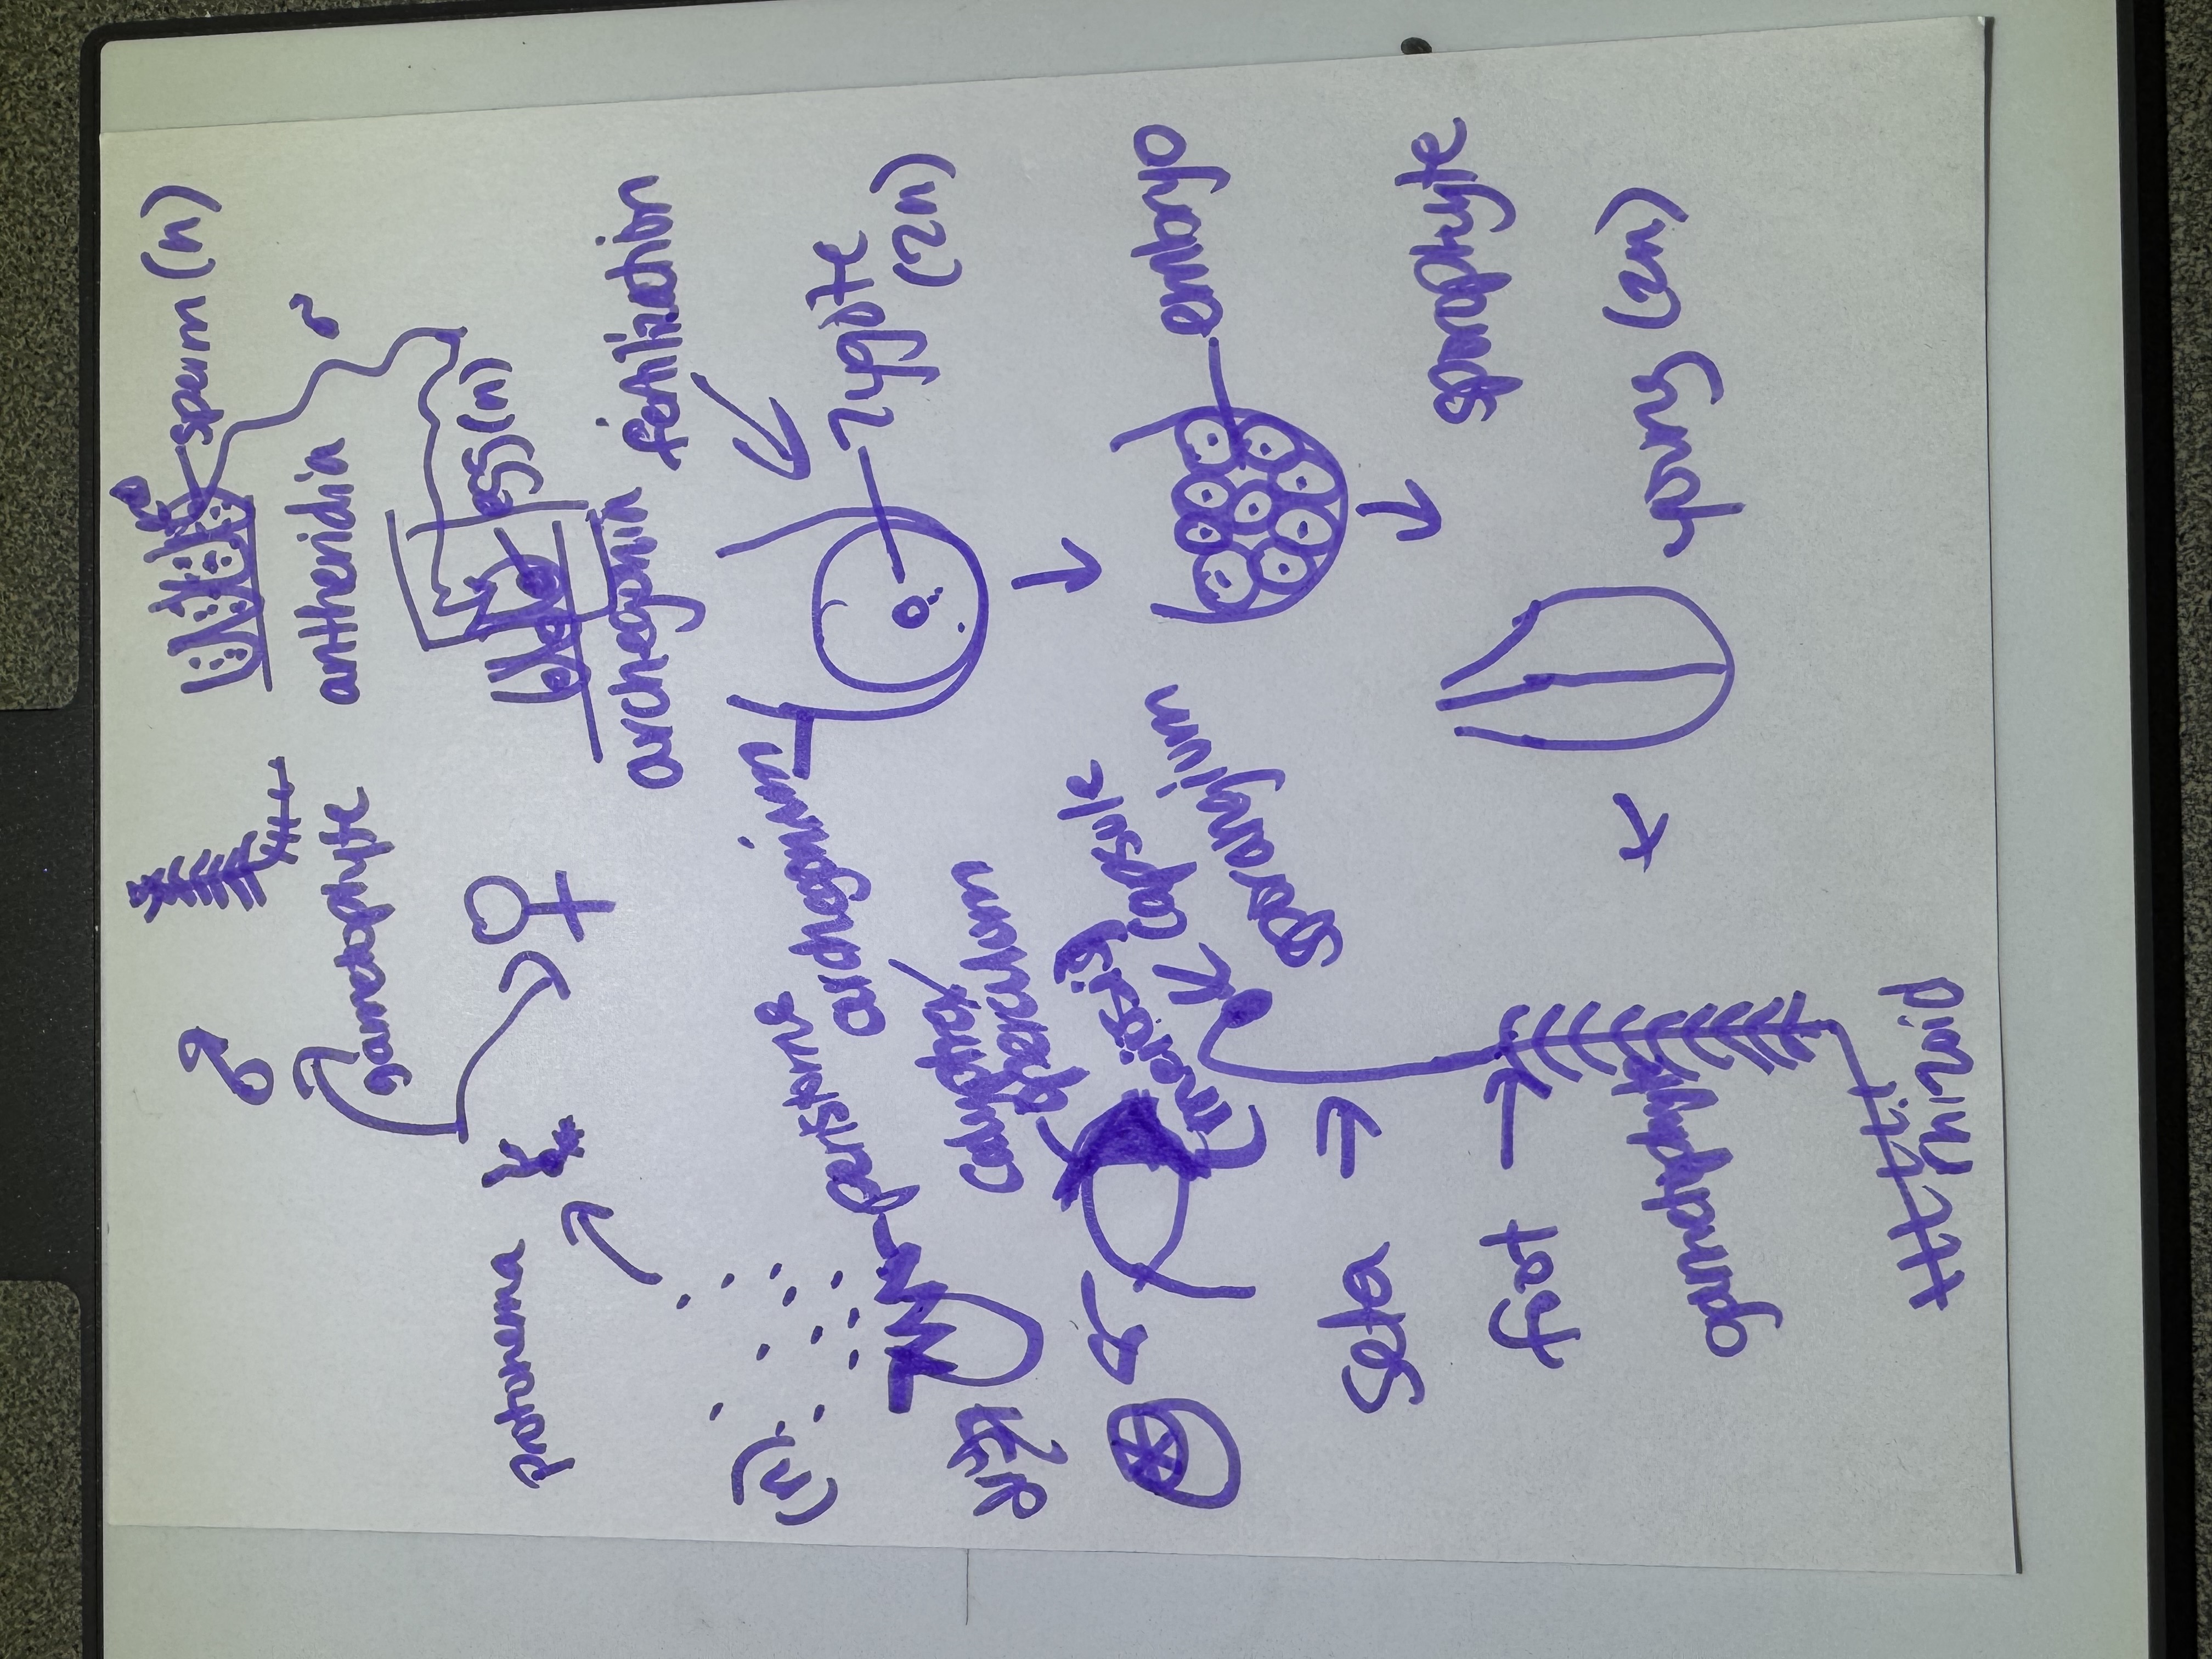 sperm (n)
♂
gametophyte
antheridia
♂
protonema
♀
egg (n)
archegonia
fertilization
(n)
peristome
archegonium
zygote
(2n)
calyptra
operculum
meiosis
capsule
sporangium
embryo
seta
foot
sporophyte
young (2n)
gametophyte
rhizoid